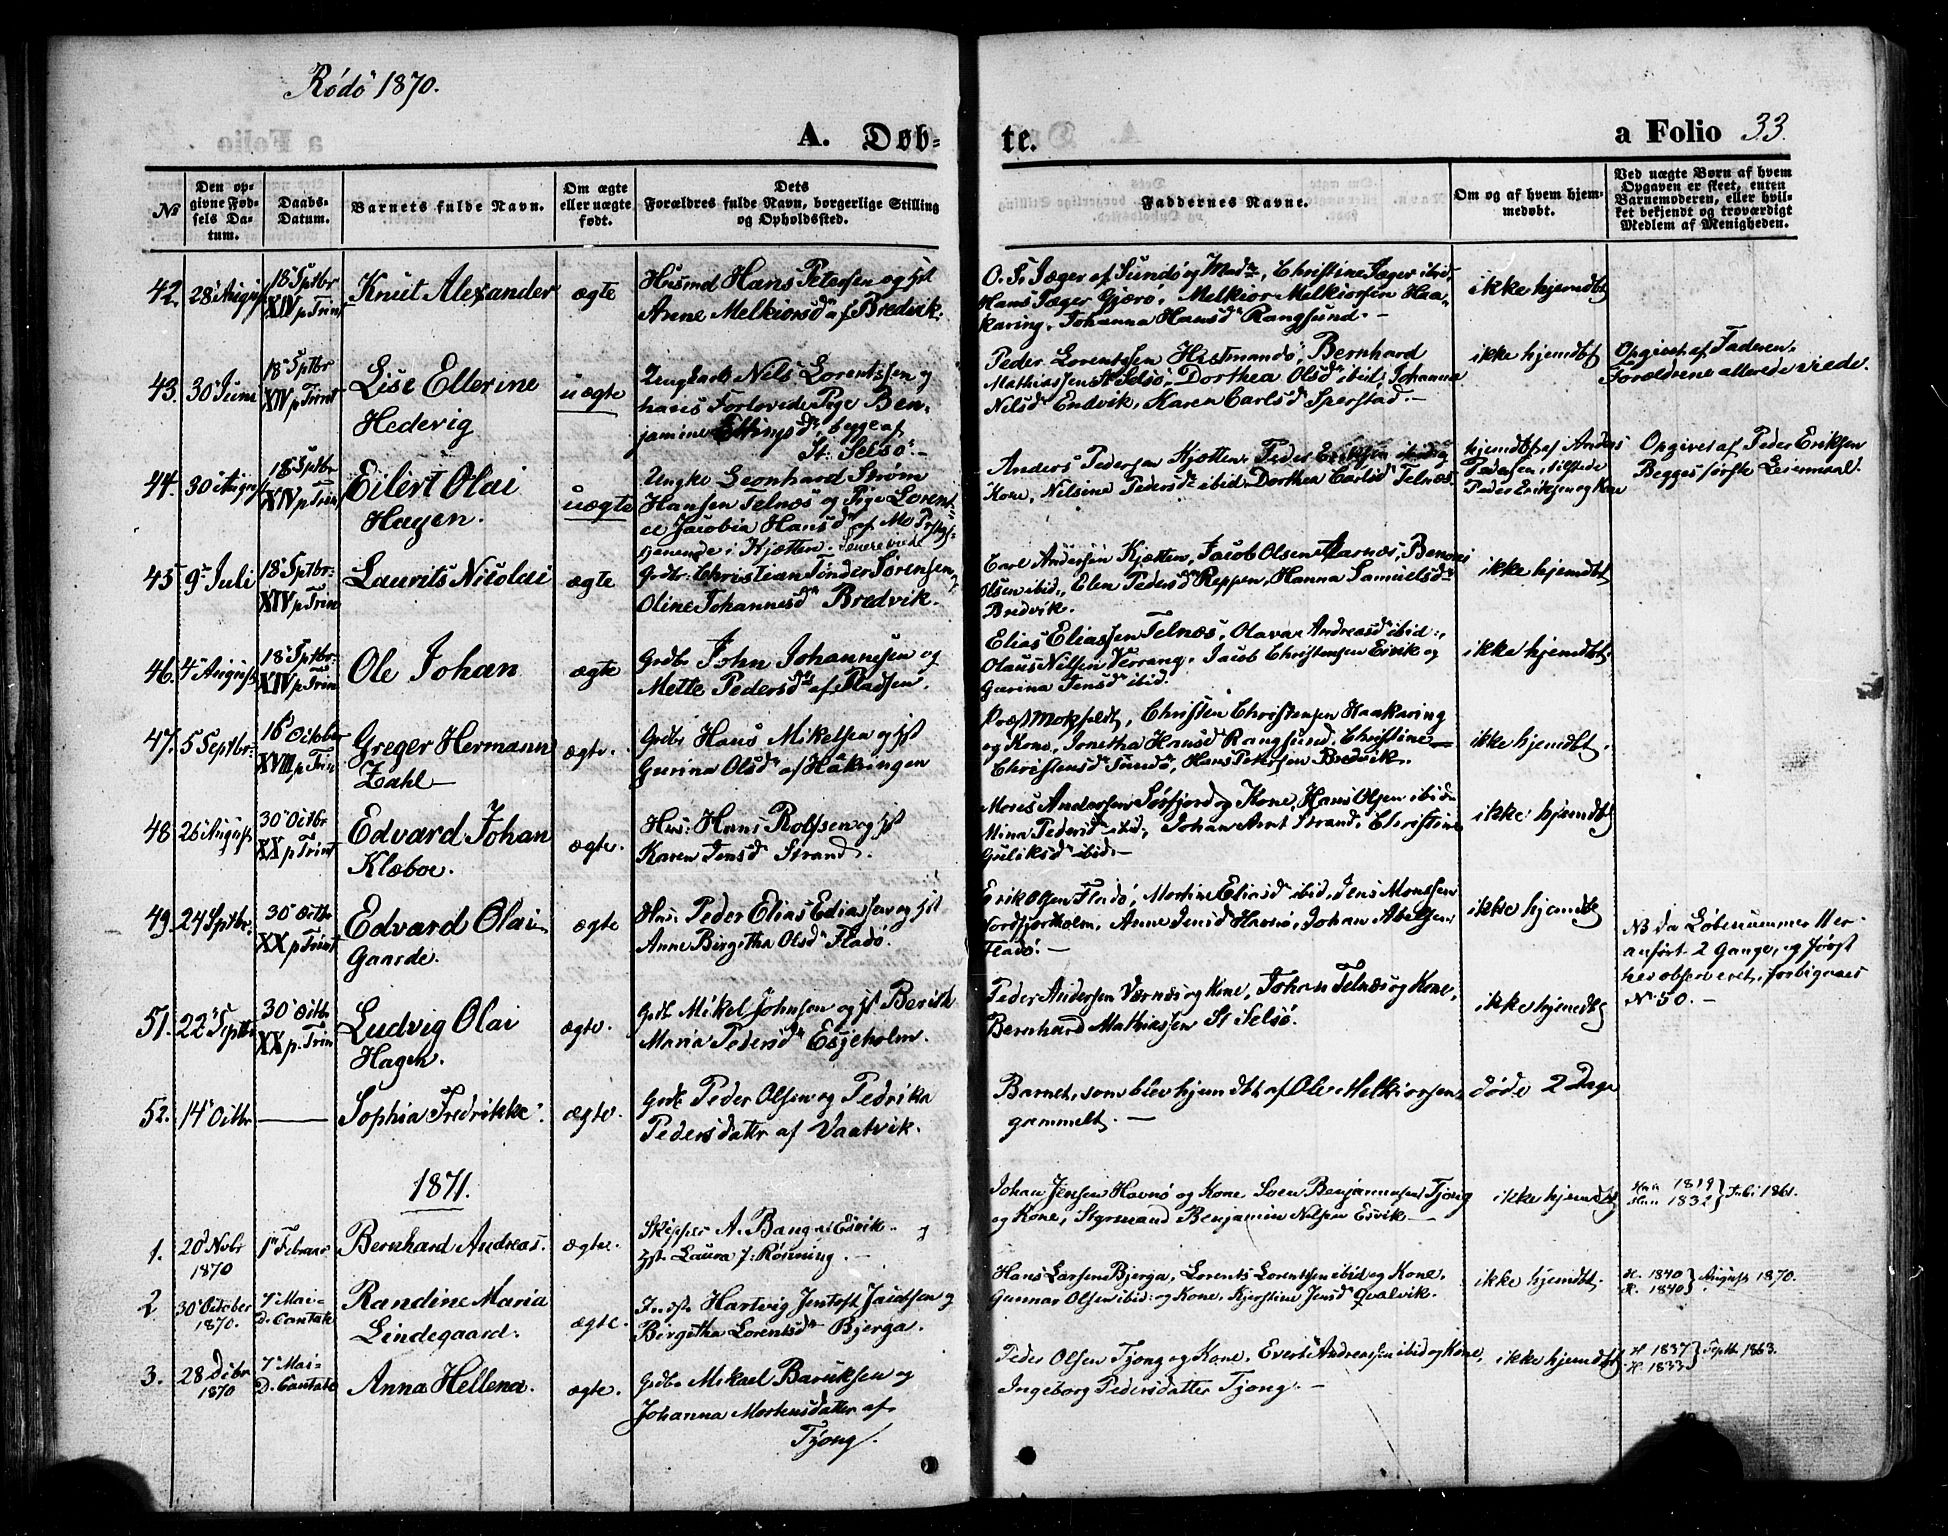 Rödö 1870.
A. Døb-
te.
a Folio 33.
№
Den op-
givne Fød-
sels Da-
tum.
Daabs-
Datum.
Barnets fulde Navn.
Om ægte
eller uægte
født.
Dets
Forældres fulde Navn, borgerlige Stilling
og Opholdssted.
Faddernes Navne.
Om og af hvem hjem-
medøbt.
Ved uægte Børn af hvem
Opgaven er skeet, enten
Barnemoderen, eller hvil-
ket bekjendt og troværdigt
Medlem af Menigheden.
42. 28 August
18 Sptbr
XIV p Trint
Knut Alexander
ægte
Husmd Hans Petersen og
Anne Melkiorsd af Bredvik.
O. S. Jæger af Sundö og Christine Jæger ibid,
Hans Jæger Gjærö, Melkior Melkiorsen Haa-
karing, Johanna Hansd Rangsund.-
ikke hjemdbt
43. 30 Juni
18 Sptbr
XIV p Trint
Lise Ellerine
Hedevig
uægte
Ungkarl Nils Lorentssen og
hans Forlovede Pige Ben-
jamine begge af
St. Selsö.-
Peder Lorentssen Bernhard
Mathiassen St Selsö, Dorthea Olsd ibid, Johanna
Nilsd Endvik, Karen Carlsd Sperstad.-
ikke hjemdbt
Opgivet af Faderen.
Forældrene allerede viede.
44. 30 August
18 Sptbr
XIV p Trint
Eilert Olai
Hagen.
uægte
Ungk Leonhard Strøm
Hansen Telnæs og Pige Lorent-
ce Jacobia Hansd af Mo
tjenende i Kjøtten. Senere viede
Anders Pedersen Kjøtten, Peder Eriksen ibid og
Kone, Nilsine Pedersd ibid, Dorthea Carlsd Telnæs.
hjemdbt af Anders
Pedersen, tilstede
Peder Eriksen og Kone
Opgivet af Peder Eriksen
Begges første Leiermaal.
45. 9 Juli
18 Sptbr.
XIV p Trin
Laurits Nicolai
ægte
Grdbr. Christian Tønder Sørensen
Oline Johannesd Bredvik.
Carl Andersen Kjøtten, Jacob Olsen Aarnæs, Benoni
Olsen ibid, Elen Pedersd Reppen, Hanna Samuelsd
Bredvik.
ikke hjemdbt
46. 4 August
18 Sptbr.
XIV p Trin
Ole Johan
ægte
Grdbr John Johannesen og
Mette Pedersd af
Elias Eliassen Telnæs, Olava Andreasd ibid.,
Olaus Nilsen Værrang, Jacob Christensen Esvik og
Gurina Jensd ibid.
ikke hjemdbt
47. 5 Septbr.
16 October
XVIII p Trin
Greger Hermann
Zahl
ægte.
Grdbr Hans Mikelsen og
Gurina Olsd af Håkringen
Præst Christen Christensen Haakaring
og Kone, Jonetha Hansd Rangsund, Christine
Christensd Sundö, Hans Petersen Bredvik.
ikke hjemdbt.
48. 26 August
30 Octbr
XX p Trint
Edvard Johan
Klæboe.
ægte.
Hus. Hans Rolfsen og
Karen Jensd Strand.
Mons Andersen Sørfjord og Kone, Hans Olsen ibid
Mina Pedersd ibid, Johan Arnt Strand, Christine
Guliksd ibid.-
ikke hjemdbt
49. 24 Septbr.
30 Octbr
XX p Trint
Edvard Olai
Gaarde.
ægte
Hus. Peder Elias Ediassen og
Anne Birgitha Olsd Fladö.
Erik Olsen Fladö, Mortine Eliasd ibid, Jens Monssen
Nordfjordholm, Anne Jensd Havnö, Johan Abelsen
Fladö.-
ikke hjemdbt
NB da Løbenummer 11 er
anført 2 Gange, og først
her observeret, forbigaaes
N 50.-
51. 22 Septbr
30 Octbr
XX p. Trin
Ludvig Olai
Hagen.
ægte.
Grdbr Mikel Johnsen og Berith
Maria Pedersd Esjeholm.
Peder Andersen Værnæs og Kone, Johan Telnæs og Kone,
Bernhard Mathiassen St Selsö.
ikke hjemdbt
52. 14 Octbr
Sophia Fredrikke.
ægte.
Grdbr Peder Olsen og Pedrika
Pedersdatter af Vaatvik.
Barnet, som blev hjemdbt af Ole Melkiorsen
grammelt.-
døde 2 Dage
1871.
1. 20 Novbr
1870
1 Februar
Bernhard Andreas.
ægte.
Skipper A. Bang Esvik og
Laura J. Rønning.-
Johan Jensen Havnö og Kone, Soen Benjaminsen Tjong
og Kone, Styrmand Benjamin Nilsen Esvik-
ikke hjemdbt
Han 1819
Hun 1832 } Juli 1861.
2 30 October
1870.
7 Mai
D. Cantate
Randine Maria
Lindegaard.
ægte.
Indst. Hartvig Jentoft Jacobsen og
Birgitha Lorentsd Bjerga.
Hans Larsen Bjerga, Lorents Lorentsen ibid og Kone.
Gunnar Olsen ibid. og Kone, Kjerstine Jensd Qvalvik.
ikke hjemdbt.
H. 1840
H. 1840 } August 1870.
3. 28 Dcbr
1870
7 Mai
D. Cantate
Anna Hellena.
ægte.
Grdbr Mikael Baruksen og
Johanna Mortensdatter af
Tjong.
Peder Olsen Tjong og Kone, Evert Andreassen ibid og Kone,
Ingeborg Pedersdatter Tjong.-
ikke hjemdbt
H 1837
H. 1833 } Septbr 1863.